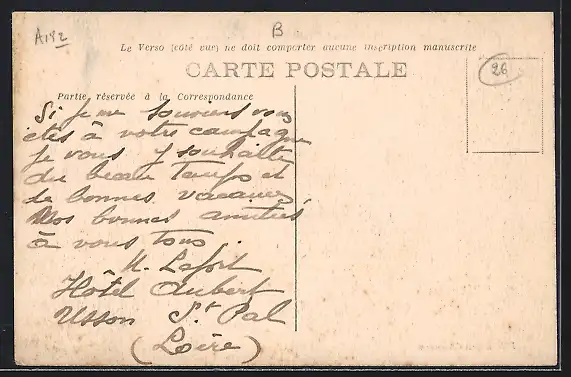 A182
B
Le Verso (côté vue) ne doit comporter aucune inscription manuscrite
CARTE POSTALE
26
Partie réservée à la Correspondance
Si je me souviens vous
êtes à votre campagne
je vous y souhaite
du beau temps et
de bonnes vacances,
Nos bonnes amitiés
à vous tous.
Hôtel Aubert
Usson St Pal
(Loire)